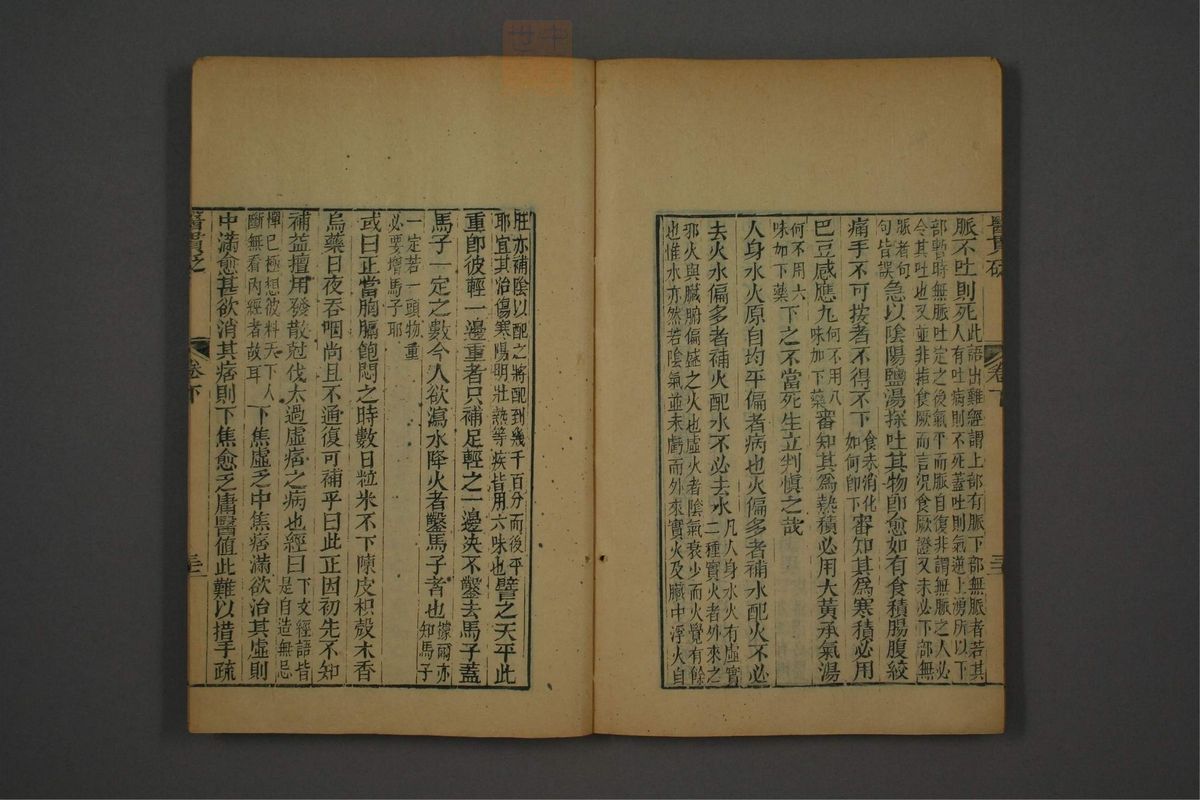 醫貫砭
卷下
三三
脈不吐則死此語出難經謂上部有脈下部無脈者若其人有吐病則不死蓋吐則氣逆上湧所以下
部暫時無脈吐定之後氣平而脈自復非謂無脈之人必令其吐也又並非指食厥而言況食厥證又未必下部無
脈者句句皆誤急以陰陽鹽湯探吐其物卽愈如有食積腸腹絞
痛手不可按者不得不下食未消化如何卽下審知其爲寒積必用
巴豆感應丸何不用八味加下藥審知其爲熱積必用大黃承氣湯
何不用六味加下藥下之不當死生立判慎之哉
人身水火原自均平偏者病也火偏多者補水配火不必
去火水偏多者補火配水不必去水凡人身水火有虛實二種實火者外來之
邪火與臟腑偏盛之火也虛火者陰氣衰少而火覺有餘也惟水亦然若陰氣並未虧而外來實火及臟中浮火自
旺亦補陰以配之將配到幾千百分而後平耶宜其治傷寒陽明壯熱等疾皆用六味也譬之天平此
重卽彼輕一邊重者只補足輕之一邊決不鑿去馬子蓋
馬子一定之數今人欲瀉水降火者鑿馬子者也據爾亦知馬子
一定若一頭物重必要增馬子耶
或曰正當胸膈飽悶之時數日粒米不下陳皮枳殼木香
烏藥日夜吞咽尚且不通復可補乎曰此正因初先不知
補益擅用發散尅伐太過虛痞之病也經曰下文經語皆是自造無忌
憚已極想彼料天下人斷無看內經者故耳下焦虛乏中焦痞滿欲治其虛則
中滿愈甚欲消其痞則下焦愈乏庸醫值此難以措手疏
醫貫砭
卷下
三三